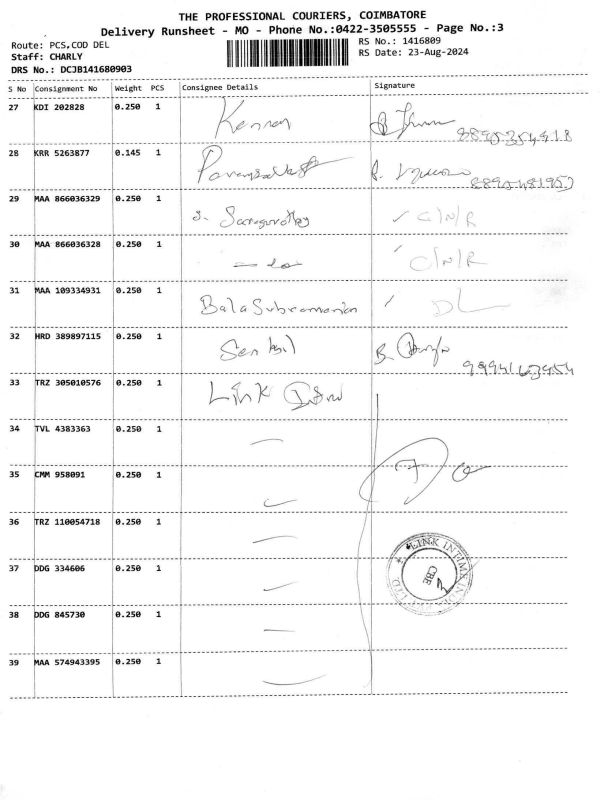 THE PROFESSIONAL COURIERS, COIMBATORE
Delivery Runsheet - MO - Phone No.:0422-3505555 - Page No.:3
Route: PCS,COD DEL
Staff: CHARLY
DRS No.: DCJB141680903
RS No.: 1416809
RS Date: 23-Aug-2024
S No Consignment No Weight PCS Consignee Details Signature
27 KDI 202828 0.250 1 Kennan
28 KRR 5263877 0.145 1
29 MAA 866036329 0.250 1 C/N/R
30 MAA 866036328 0.250 1 C/N/R
31 MAA 109334931 0.250 1 BalaSubramanian DL
32 HRD 389897115 0.250 1 Senthil
33 TRZ 305010576 0.250 1 Link
34 TVL 4383363 0.250 1
35 CMM 958091 0.250 1
36 TRZ 110054718 0.250 1
37 DDG 334606 0.250 1
38 DDG 845730 0.250 1
39 MAA 574943395 0.250 1
LINK INTIME INDIA PVT LTD
CBE